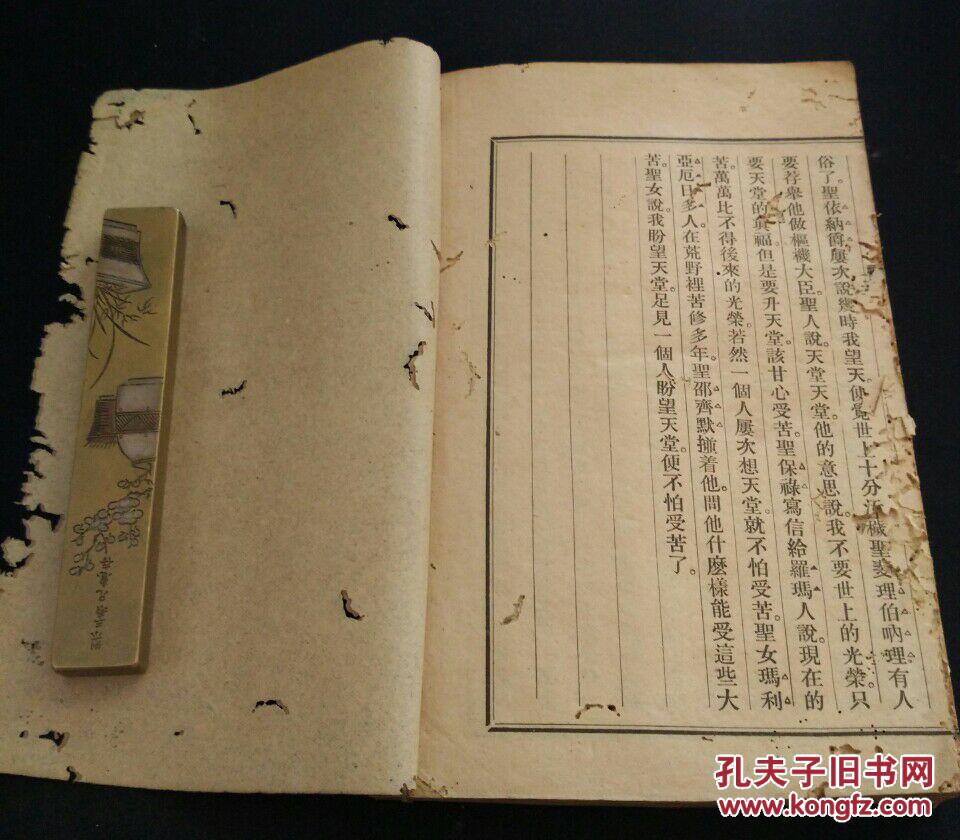 俗了。聖依納爵屢次說。幾時我望天。便覺世上十分汚穢。聖斐理伯吶理。有人
要荐舉他做樞機大臣。聖人說。天堂天堂。他的意思說。我不要世上的光榮。只
要天堂的眞福。但是要升天堂。該甘心受苦。聖保祿寫信給羅瑪人說。現在的
苦。萬萬比不得後來的光榮。若然一個人屢次想天堂。就不怕受苦。聖女瑪利
亞厄日多人。在荒野裡苦修多年。聖邵齊默撞着他。問他什麼樣能受這些大
苦。聖女說。我盼望天堂。足見一個人盼望天堂。便不怕受苦了。
孔夫子旧书网
www.kongfz.com